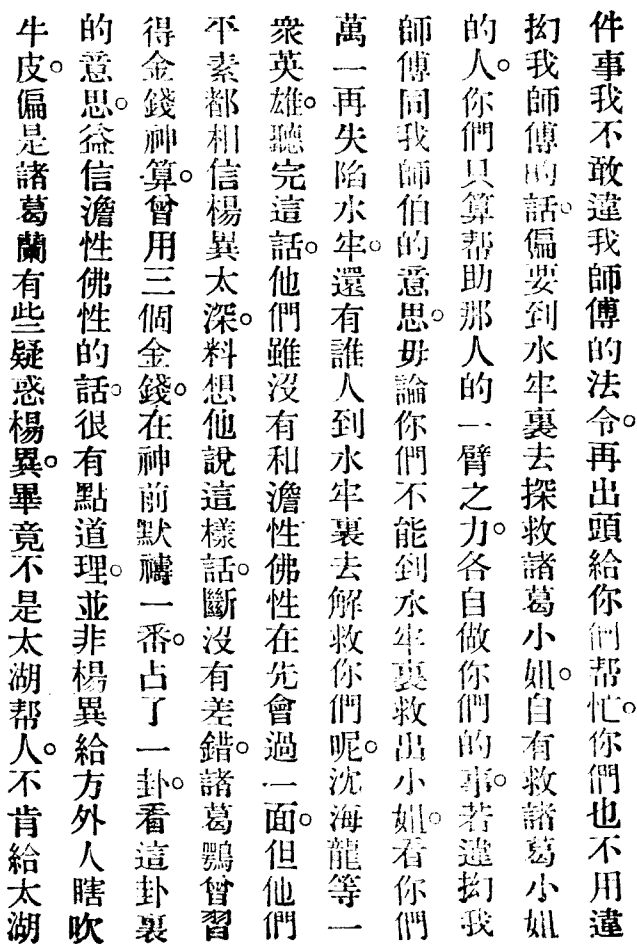 件事我不敢違我師傅的法令。再出頭給你們帮忙。你們也不用違
拗我師傅的話。偏要到水牢裏去探救諸葛小姐。自有救諸葛小姐
的人。你們只算帮助那人的一臂之力。各自做你們的事。若違拗我
師傅同我師伯的意思。毋論你們不能到水牢裏救出小姐。看你們
萬一再失陷水牢。還有誰人到水牢裏去解救你們呢。沈海龍等一
衆英雄。聽完這話。他們雖沒有和澹性佛性在先會過一面。但他們
平素都相信楊異太深。料想他說這樣話。斷沒有差錯。諸葛鶚曾習
得金錢神算。曾用三個金錢。在神前默禱一番。占了一卦。看這卦裏
的意思。益信澹性佛性的話。很有點道理。並非楊異給方外人瞎吹
牛皮。偏是諸葛蘭有些疑惑楊異。畢竟不是太湖帮人。不肯給太湖